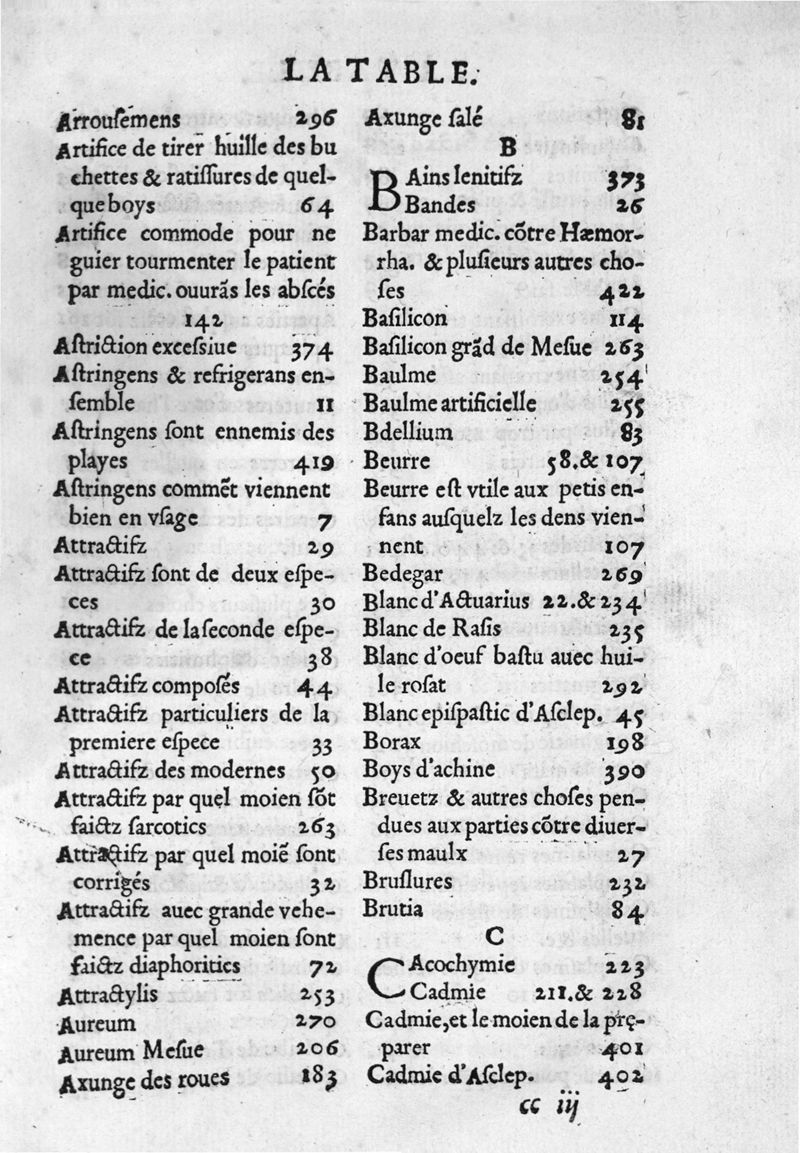 LA TABLE.
Arrouſemens 296
Artifice de tirer huille des bu
chettes & ratiſſures de quel-
que boys 64
Artifice commode pour ne
guier tourmenter le patient
par medic. ouurãs les abſcés
142
Aſtriction exceſsiue 374
Aſtringens & refrigerans en-
ſemble 11
Aſtringens ſont ennemis des
playes 419
Aſtringens commẽt viennent
bien en vſage 7
Attractifz 29
Attractifz ſont de deux eſpe-
ces 30
Attractifz de la ſeconde eſpe-
ce 38
Attractifz compoſés 44
Attractifz particuliers de la
premiere eſpece 33
Attractifz des modernes 50
Attractifz par quel moien ſõt
faictz ſarcotics 263
Attractifz par quel moiẽ ſont
corrigés 32
Attractifz auec grande vehe-
mence par quel moien ſont
faictz diaphoritics 72
Attractylis 253
Aureum 270
Aureum Meſue 206
Axunge des roues 183
Axunge ſalé 81
B
BAins lenitifz 373
Bandes 26
Barbar medic. cõtre Hæmor-
rha. & pluſieurs autres cho-
ſes 422
Baſilicon 114
Baſilicon grãd de Meſue 263
Baulme 254
Baulme artificielle 255
Bdellium 83
Beurre 58.& 107
Beurre eſt vtile aux petis en-
fans auſquelz les dens vien-
nent 107
Bedegar 269
Blanc d'Actuarius 22.& 234
Blanc de Raſis 235
Blanc d'oeuf baſtu auec hui-
le roſat 292
Blanc epiſpaſtic d'Aſclep. 45
Borax 198
Boys d'achine 390
Breuetz & autres choſes pen-
dues aux parties cõtre diuer-
ſes maulx 27
Bruſlures 232
Brutia 84
C
CAcochymie 223
Cadmie 211.& 228
Cadmie,et le moien de la prę-
parer 401
Cadmie d'Aſclep. 402
cc iij